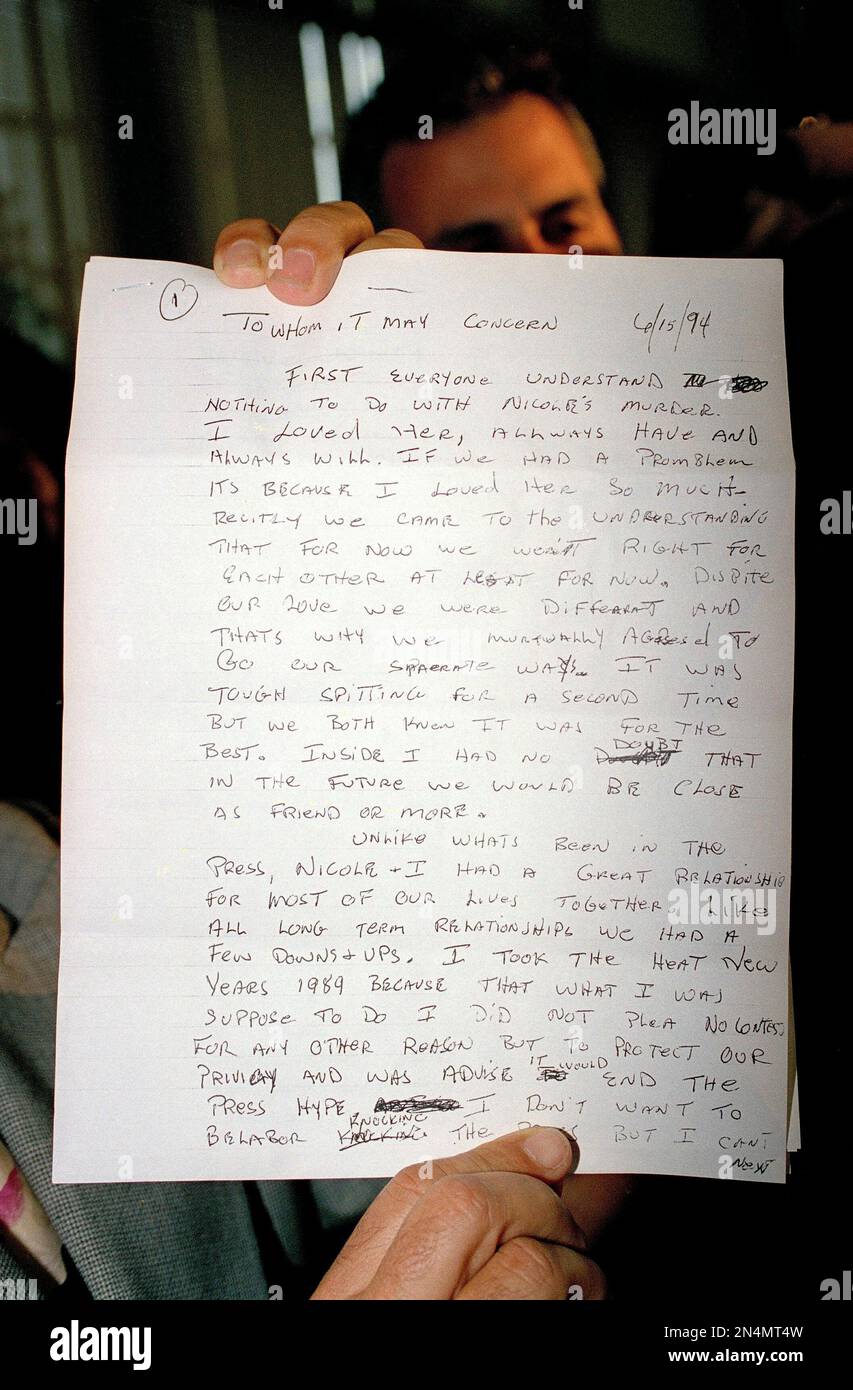 1
TO WHOM IT MAY CONCERN 6/15/94
FIRST EVERYONE UNDERSTAND
NOTHING TO DO WITH NICOLE'S MURDER.
I LOVED HER, ALLWAYS HAVE AND
ALWAYS WILL. IF WE HAD A PROMBLEM
ITS BECAUSE I LOVED HER SO MUCH.
RECITLY WE CAME TO THE UNDERSTANDING
THAT FOR NOW WE WERN'T RIGHT FOR
EACH OTHER AT LEAST FOR NOW. DISPITE
OUR LOVE WE WERE DIFFERANT AND
THATS WHY WE MURTUALLY AGREED TO
GO OUR SPAERATE WAYS. IT WAS
TOUGH SPITTING FOR A SECOND TIME
BUT WE BOTH KNEW IT WAS FOR THE
BEST. INSIDE I HAD NO DOUBT THAT
IN THE FUTURE WE WOULD BE CLOSE
AS FRIEND OR MORE.
UNLIKE WHATS BEEN IN THE
PRESS, NICOLE + I HAD A GREAT RELATIONSHIP
FOR MOST OF OUR LIVES TOGETHER. LIKE
ALL LONG TERM RELATIONSHIPS WE HAD A
FEW DOWNS + UPS. I TOOK THE HEAT NEW
YEARS 1989 BECAUSE THAT WHAT I WAS
SUPPOSE TO DO I DID NOT PLEA NO CONTEST
FOR ANY OTHER REASON BUT TO PROTECT OUR
PRIVICY AND WAS ADVISE IT WOULD END THE
PRESS HYPE I DON'T WANT TO
BELABOR KNOCKING THE PRESS BUT I CANT
alamy
a
2N4MT4W
Image ID: 2N4MT4W
www.alamy.com